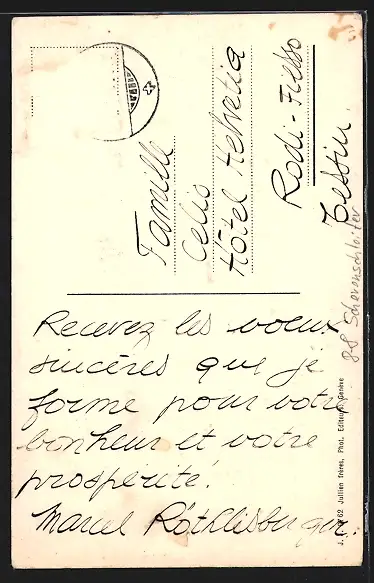 Famille
Celio
Hôtel Helvetia
Rodi-Fiesso
Tessin.
Recevez les voeux
sincères que je
forme pour votre
bonheur et votre
prospérité.
Marcel Röthlisberger.
62 Jullien frères, Phot. Editeurs, Genève